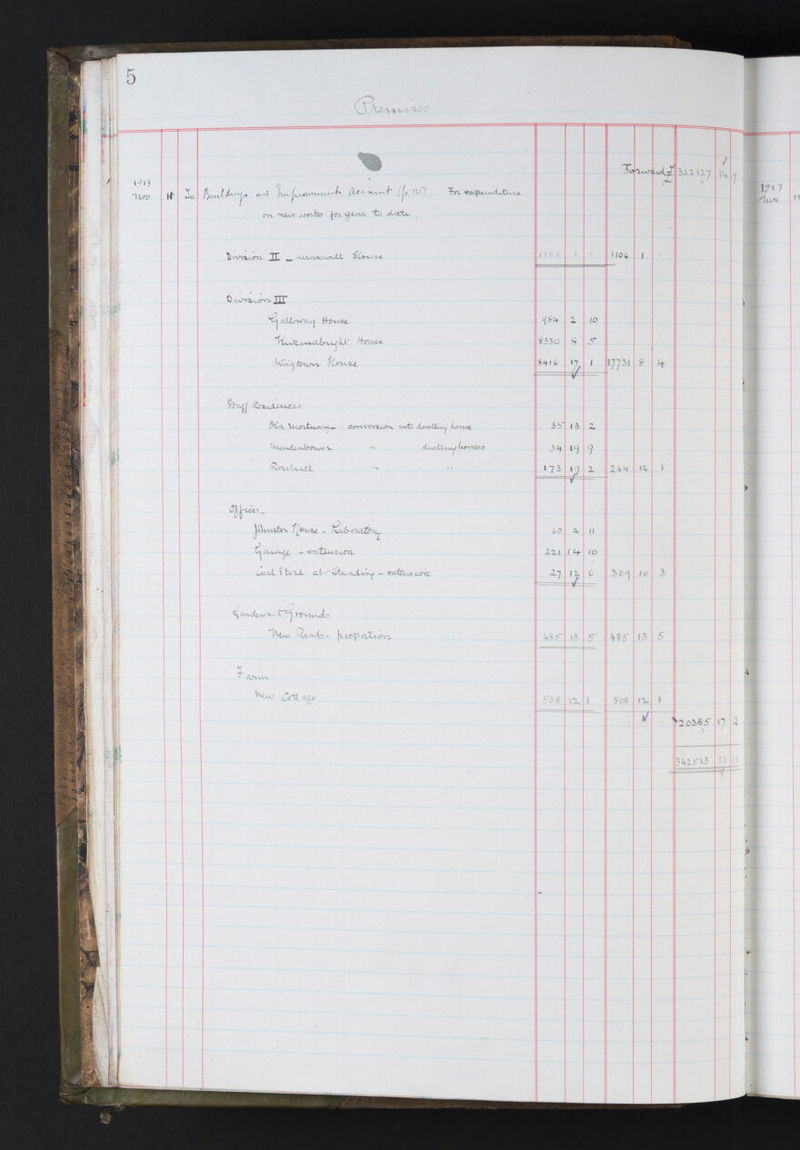 5
Premises
Forward £ 322127 14 9
1913
Nov. To Buildings and Improvements Account (fo. 131) For expenditure
on new works for year to date.
Division II - Maxwell House 1106 1 - 1106 1 -
Division III
Galloway House 984 2 10
Kirkcudbright House 8330 8 5
Wigtown House 8416 17 1 17731 8 4
Staff Residences
Old Mortuary - conversion into dwelling house 35 13 2
" dwelling houses 34 19 9
Rosehall " " 173 19 2 244 12 1
Offices -
Johnston House - Laboratory 60 2 11
Garage - extension 221 14 10
Coal Store at Steading - extension 27 12 6 309 10 3
Gardens & Grounds
New Roads - proportion 485 13 5 485 13 5
Farm
New Cottage 508 12 1 508 12 1
20385 17 2
342513 11 11